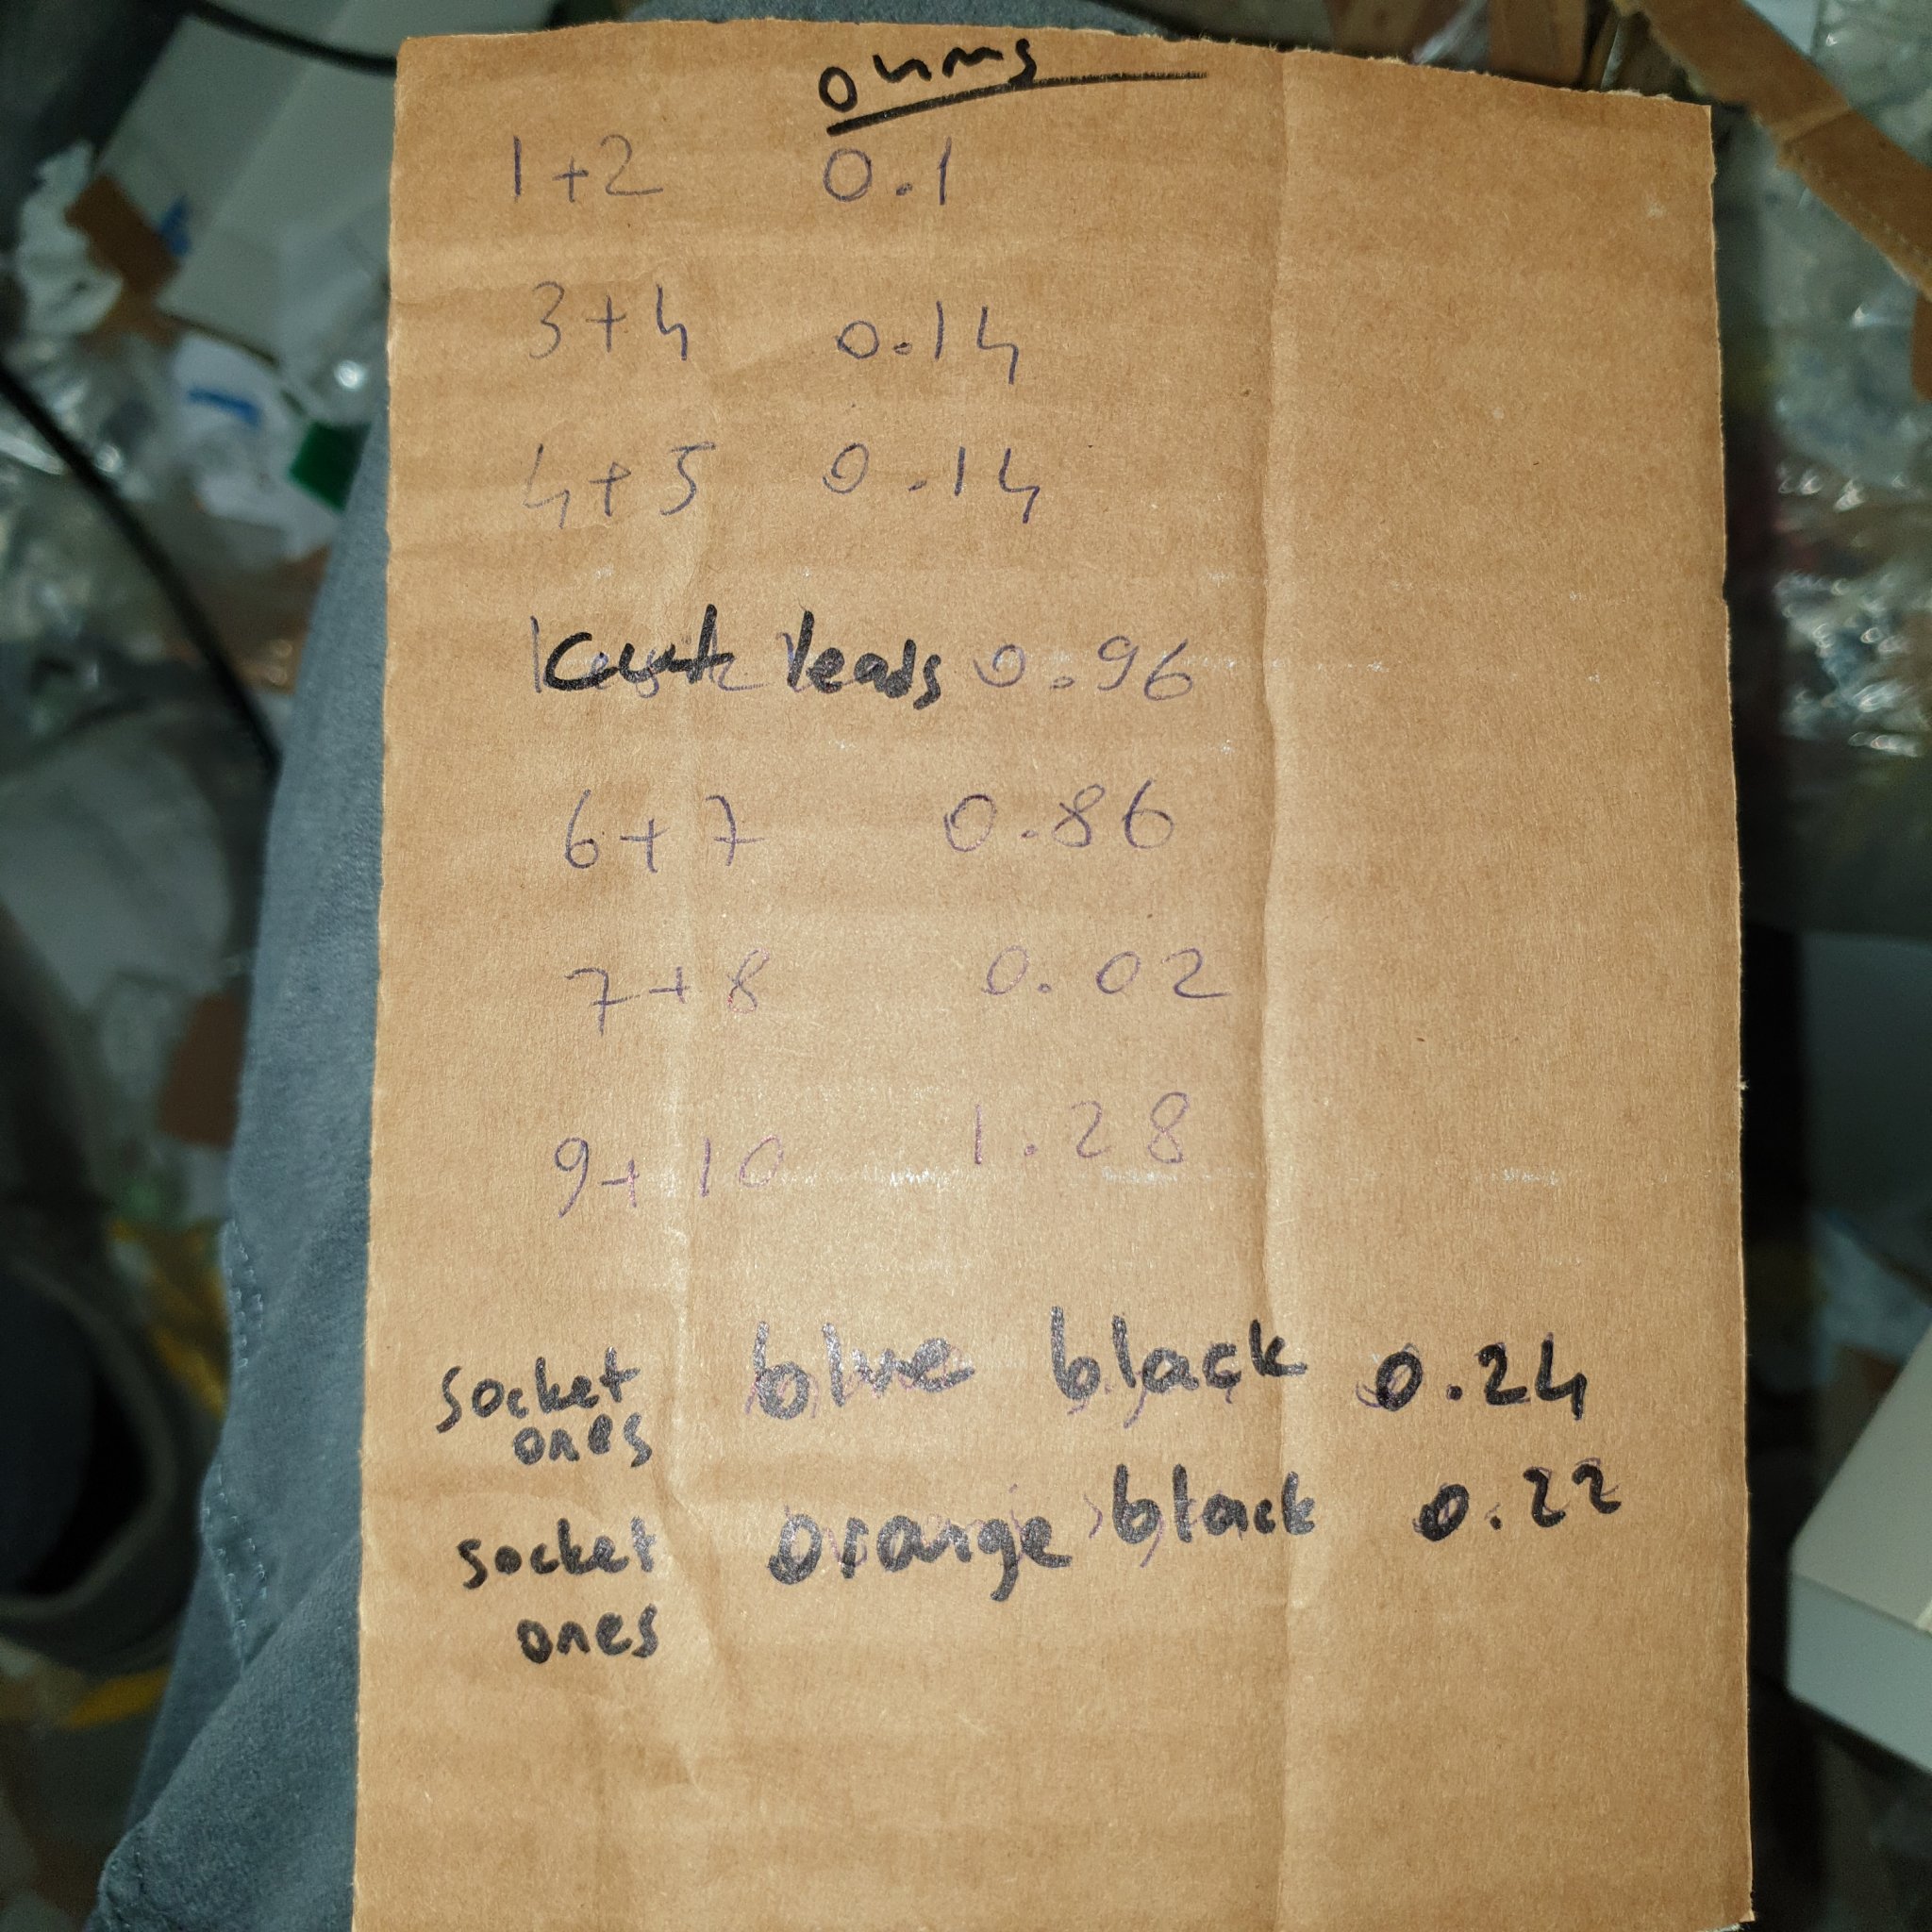 ohms
1+2 0.1
3+4 0.14
4+5 0.14
leads 0.96
6+7 0.86
7+8 0.02
9+10 1.28
socket ones blue black 0.24
socket ones orange black 0.22